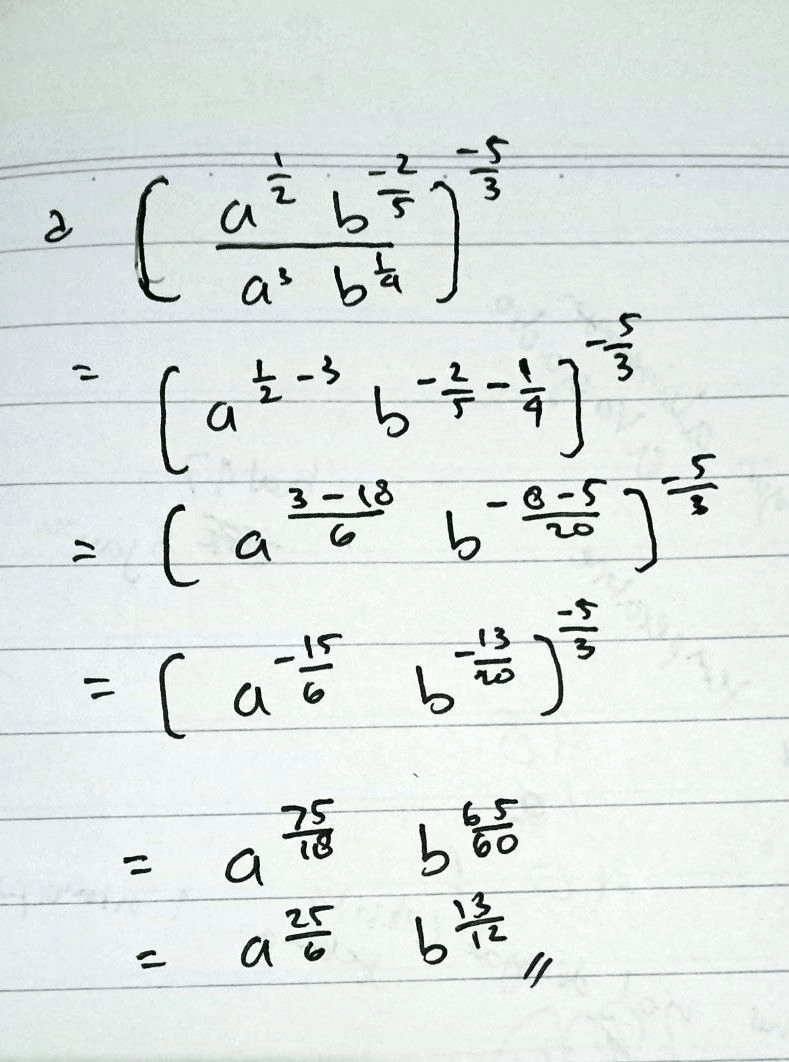 2 ( a^{1/2} b^{-2/5} / a^3 b^{1/4} )^{-5/3}
= [ a^{1/2 - 3} b^{-2/5 - 1/4} ]^{-5/3}
= [ a^{(3-18)/6} b^{(-8-5)/20} ]^{-5/3}
= [ a^{-15/6} b^{-13/20} )^{-5/3}
= a^{75/18} b^{65/60}
= a^{25/6} b^{13/12} //